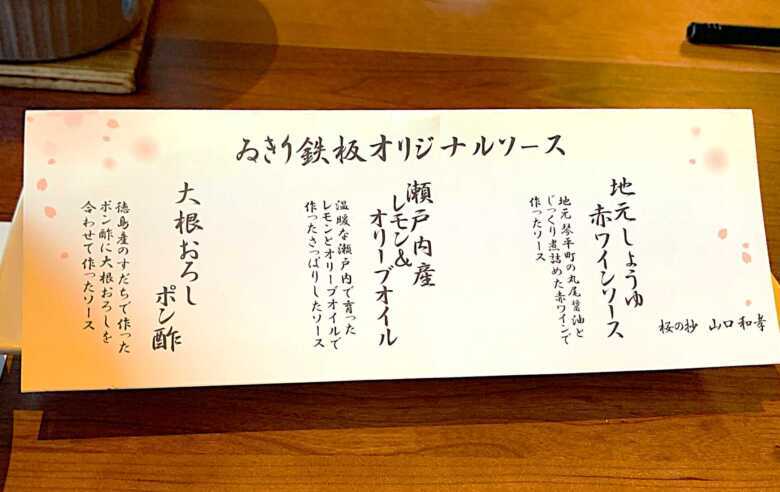 ゐきり鉄板オリジナルソース
地元しょうゆ
赤ワインソース
地元琴平町の丸尾醤油と
じっくり煮詰めた赤ワインで
作ったソース
瀬戸内産
レモン&
オリーブオイル
温暖な瀬戸内で育った
レモンとオリーブオイルで
作ったさっぱりしたソース
大根おろし
ポン酢
徳島産のすだちで作った
ポン酢に大根おろしを
合わせて作ったソース
桜の抄 山口和孝